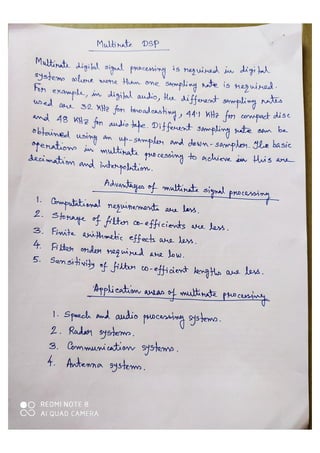 Multirate DSP
Multirate digital signal processing is required in digital
systems where more than one sampling rate is required.
For example, in digital audio, the different sampling rates
used are 32 KHz for broadcasting, 44.1 KHz for compact disc
and 48 KHz for audio tape. Different sampling rate can be
obtained using an up-sampler and down-sampler. The basic
operations in multirate processing to achieve in this are
decimation and interpolation.
Advantages of multirate signal processing
1. Computational requirements are less.
2. Storage of filter co-efficients are less.
3. Finite arithmetic effects are less.
4. Filter order required are low.
5. Sensitivity of filter co-efficient lengths are less.
Application areas of multirate processing
1. Speech and audio processing systems.
2. Radar systems.
3. Communication systems.
4. Antenna systems.
REDMI NOTE 8
AI QUAD CAMERA